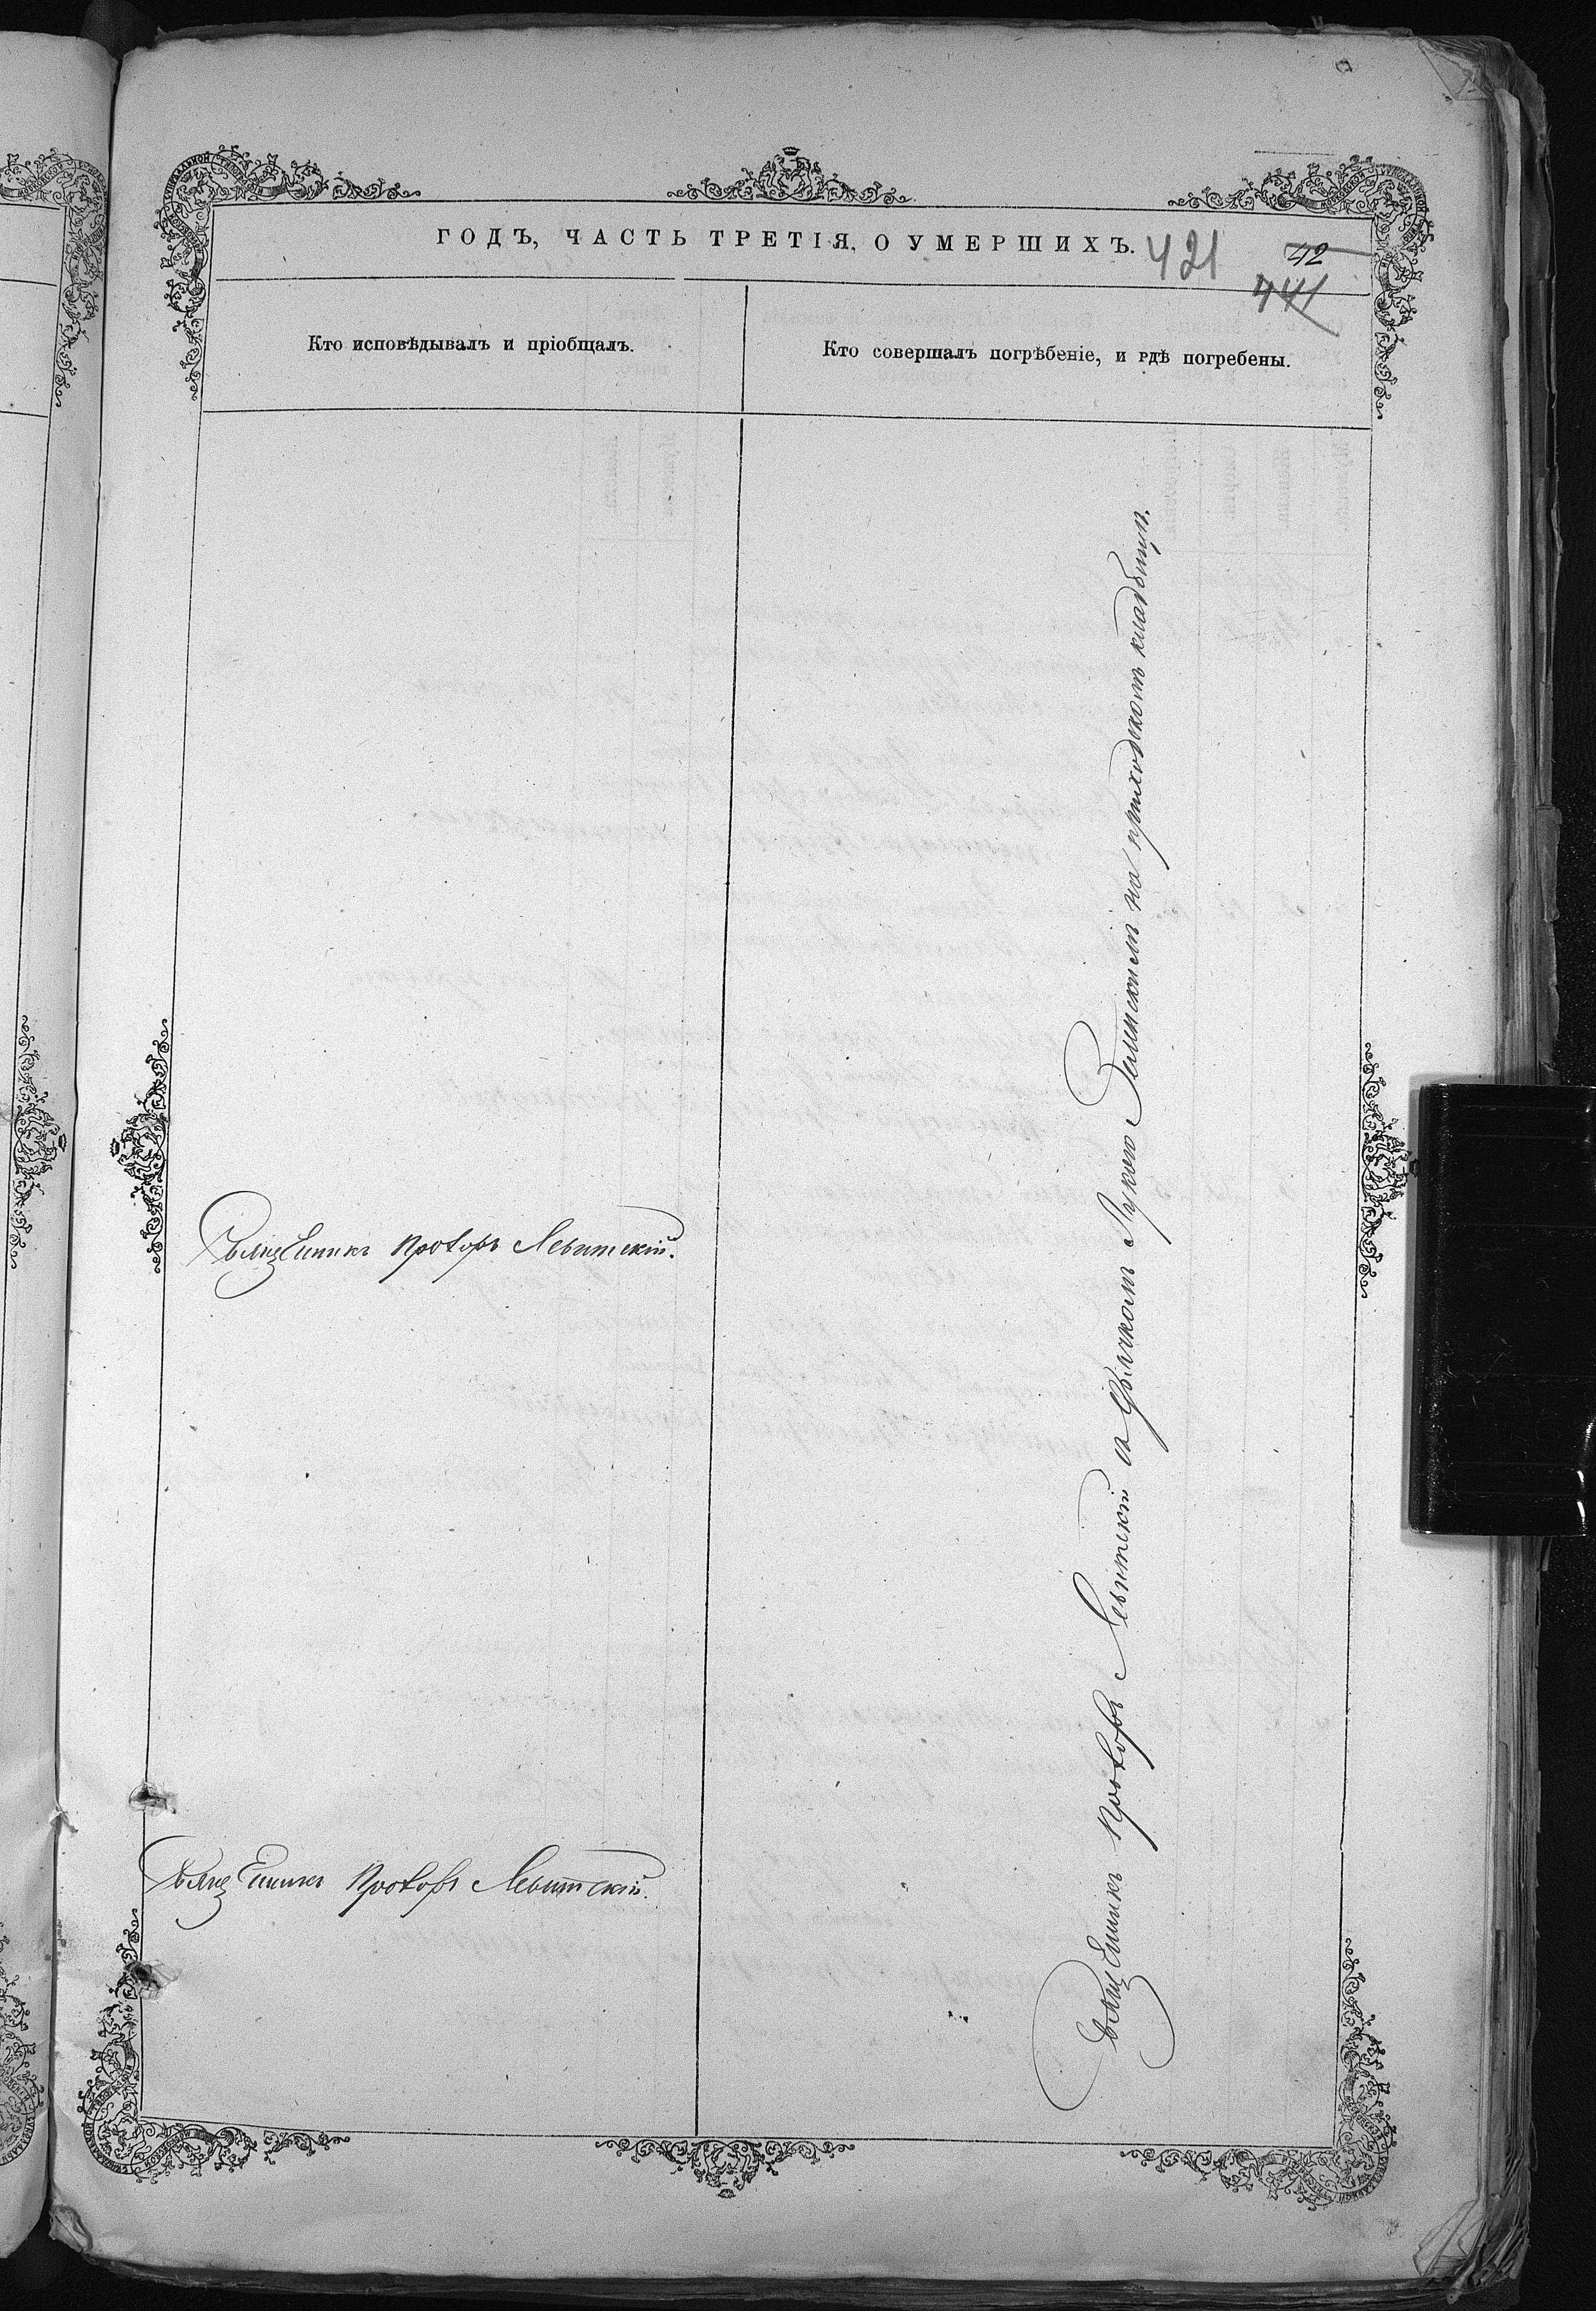 ГОДЪ, ЧАСТЬ ТРЕТІЯ, О УМЕРШИХЪ.
421
42
441
Кто исповѣдывалъ и пріобщалъ.
Кто совершалъ погрѣбеніе, и гдѣ погребены.
Священникъ Прохоръ Левитскій.
Священникъ Прохоръ Левитскій.
Священникъ Прохоръ Левитскій съ Дьячкомъ Лукою Зелинскимъ на приходскомъ кладбищѣ.